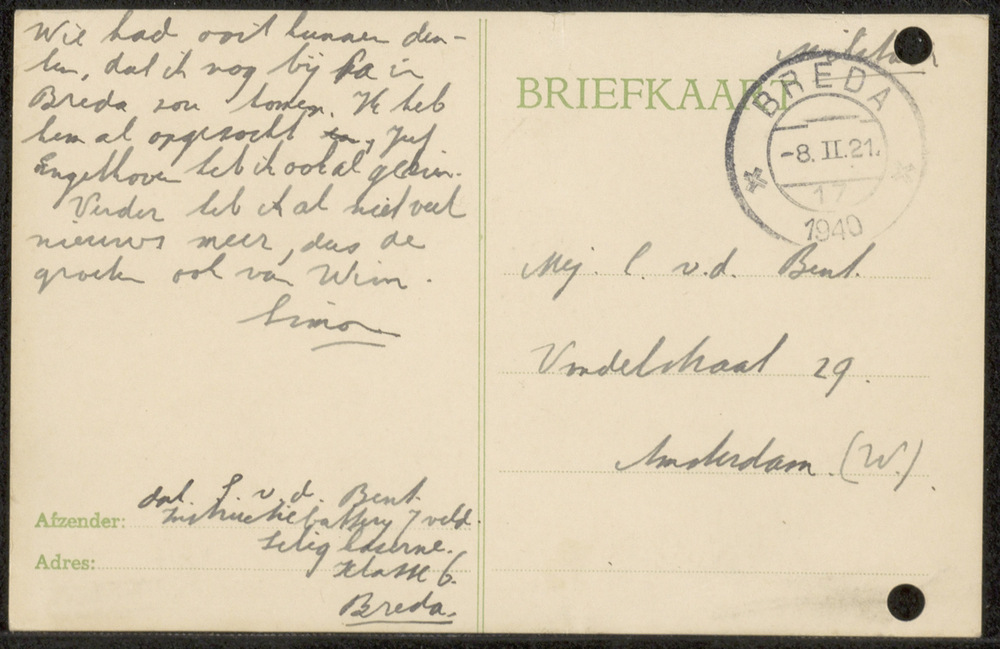 Wie had ooit kunnen den-
ken, dat ik nog bij Pa in
Breda zou komen. Ik heb
hem al opgezocht en, Juf
Engelhoven heb ik ook al gezien.
Verder heb ik al niet veel
nieuws meer, dus de
groeten ook van Wim.
Simon
Afzender: dpl. S. v.d. Bent
Instructiebatterij 7 veld.
Seelig kaserne.
Adres: Klasse 6.
Breda.
Militair
BRIEFKAART
BREDA
-8.II.21.
17
1940
Mej. C. v.d. Bent.
Vondelstraat 29.
Amsterdam (W.).